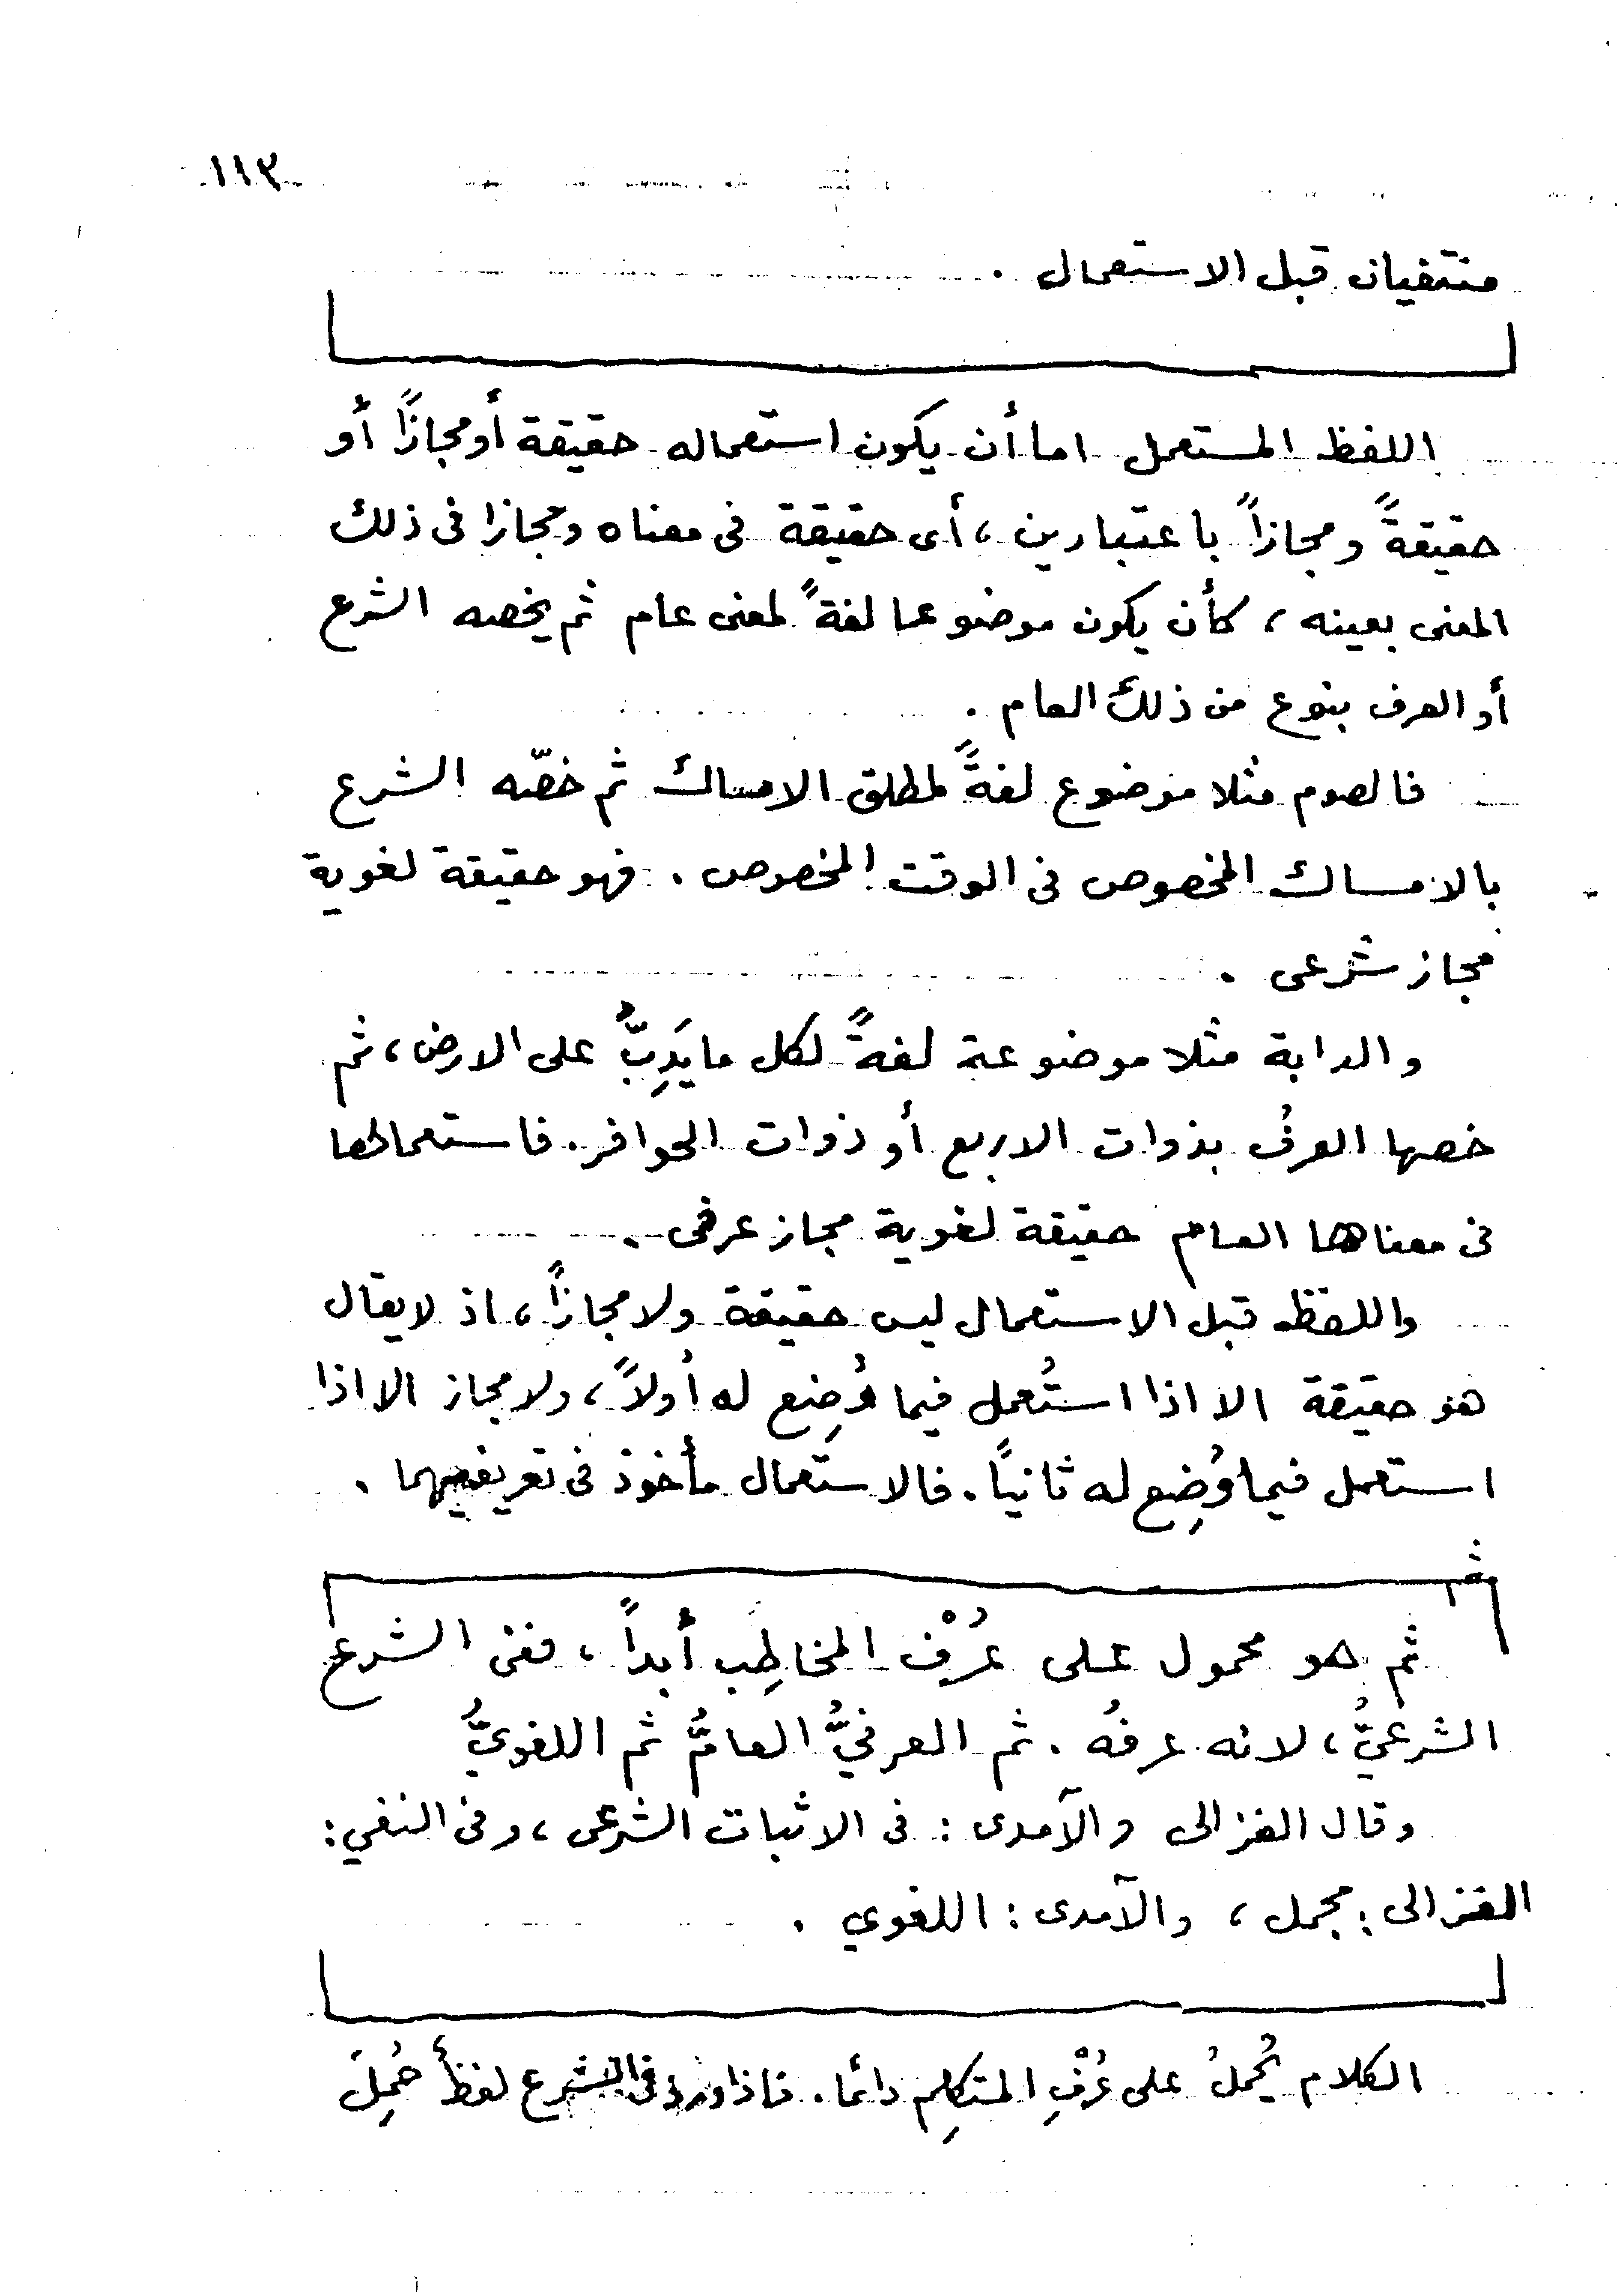 ١١٣
منتفيان قبل الاستعمال .
اللفظ المستعمل اما أن يكون استعماله حقيقة أو مجازًا أو
حقيقةً ومجازاً باعتبارين ، أى حقيقة فى معناه ومجازا فى ذلك
المعنى بعينه ، كأن يكون موضوعا لغةً لمعنى عام ثم يخصه الشرع
أو العرف بنوع من ذلك العام .
فالصوم مثلا موضوع لغةً لمطلق الامساك ثم خصّه الشرع
بالامساك المخصوص فى الوقت المخصوص . فهو حقيقة لغوية
مجاز شرعى .
والدابة مثلا موضوعة لغةً لكل ما يَدِبُّ على الارض ، ثم
خصها العرفُ بذوات الاربع أو ذوات الحوافر . فاستعمالها
فى معناها العام حقيقة لغوية مجاز عرفى .
واللفظ قبل الاستعمال ليس حقيقة ولا مجازاً ، اذ لا يقال
هو حقيقة الا اذا استُعمل فيما وُضِع له أولاً ، ولا مجاز الا اذا
استعمل فيما وُضِع له ثانيًا . فالاستعمال مأخوذ فى تعريفيهما .
ثم هو محمول على عُرْف المخاطِب أبداً ، ففى الشرع
الشرعيُّ ، لانه عرفُه . ثم العرفيُّ العامُّ ثم اللغويُّ
وقال الغزالى والآمدى : فى الاثبات الشرعى ، وفى النفي :
الغزالى : مجمل ، والآمدى : اللغوي .
الكلام يُحملُ على عُرْفِ المتكلِم دائما . فاذا ورد فى الشرع لفظٌ حُمِلَ